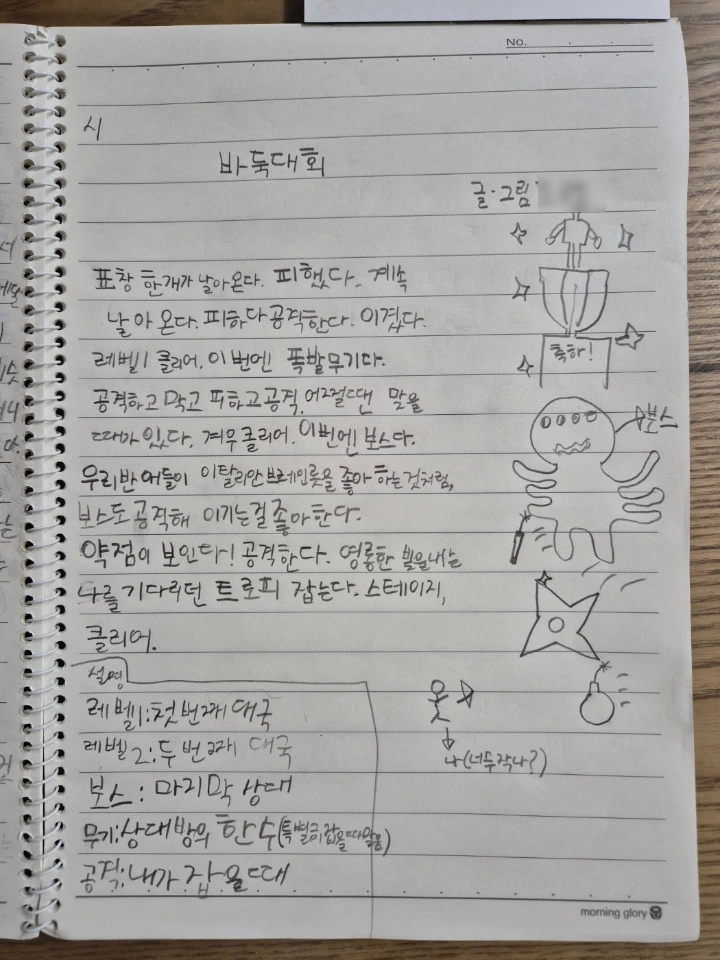 No.
시
바둑대회
글·그림
표창 한개가 날아온다. 피했다. 계속
날아 온다. 피하다 공격한다. 이겼다.
축하!
레벨1 클리어. 이번엔 폭발무기다.
공격하고 막고 피하고 공격. 어쩔땐 맞을
보스
따아 있다. 겨우 클리어. 이번엔 보스다.
우리반 애들이 이탈리안 브레인롯을 좋아하는것처럼,
보스도 공격해 이기는걸 좋아한다.
약점이 보인다! 공격한다. 영롱한 빛을내는
나를 기다리던 트로피 잡는다. 스테이지,
클리어.
설명
레벨1:첫번째 대국
레벨2:두번째 대국
나(너무작나?)
보스: 마지막 상대
무기:상대방의 한수
공격:내가 잡을때
morning glory